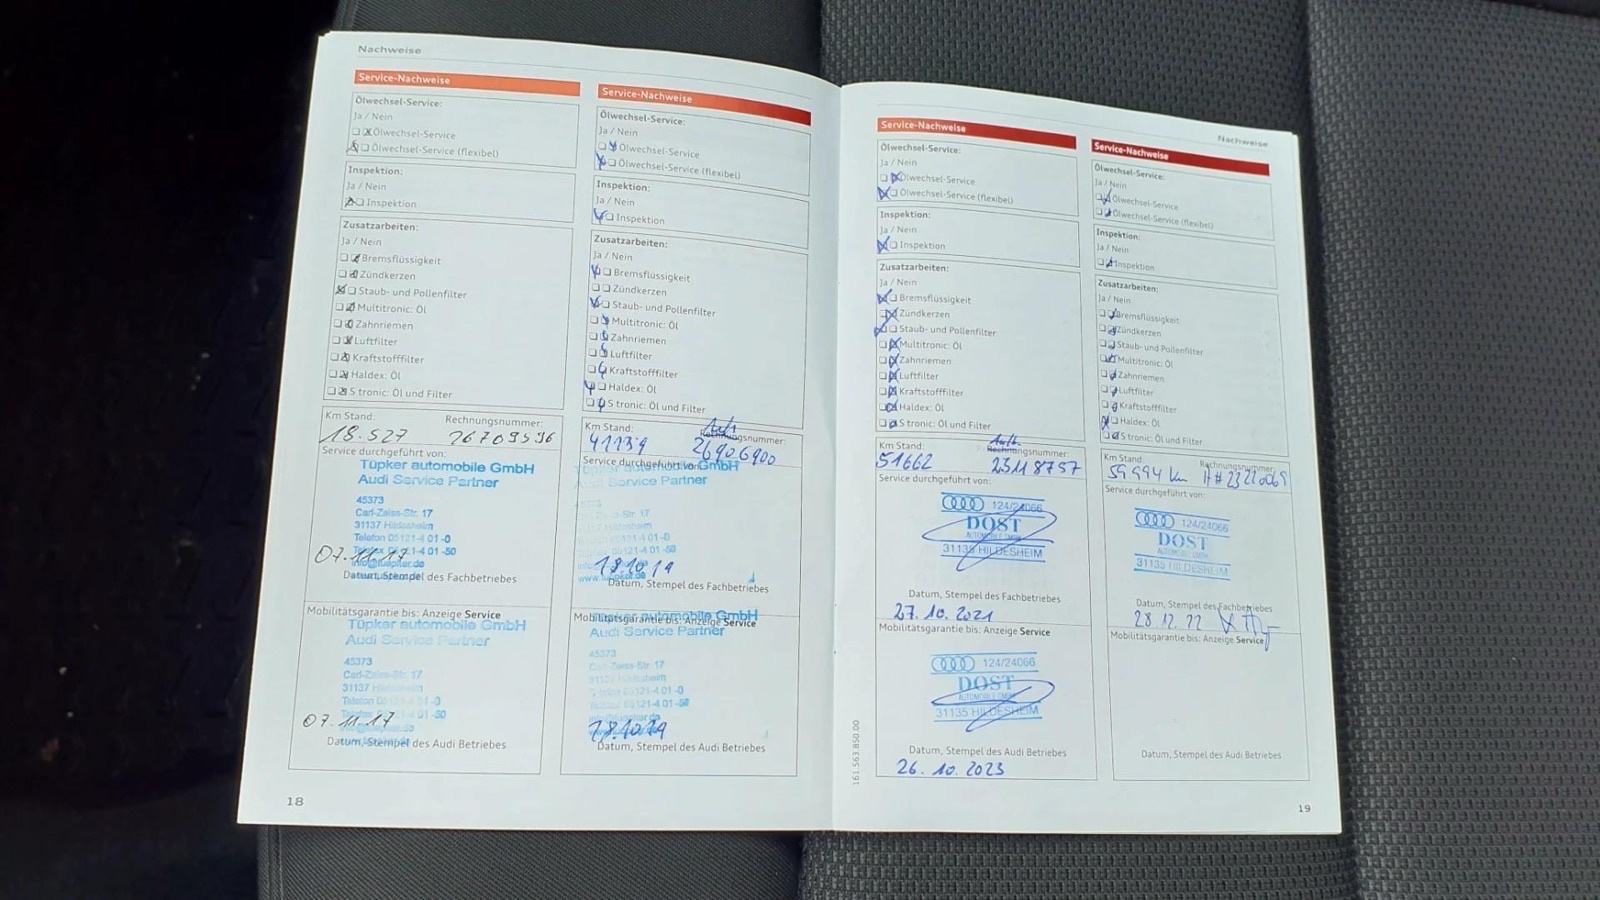 Nachweise
Service-Nachweise
Ölwechsel-Service:
Ja / Nein
Ölwechsel-Service
Ölwechsel-Service (flexibel)
Inspektion:
Ja / Nein
Inspektion
Zusatzarbeiten:
Ja / Nein
Bremsflüssigkeit
Zündkerzen
Staub- und Pollenfilter
Multitronic: Öl
Zahnriemen
Luftfilter
Kraftstofffilter
Haldex: Öl
S tronic: Öl und Filter
Km Stand: Rechnungsnummer:
18.527 26709596
Service durchgeführt von:
Tüpker automobile GmbH
Audi Service Partner
45373
Carl-Zeiss-Str. 17
31137 Hildesheim
Telefon 05121-4 01-0
Telefax 05121-4 01-50
info@tuepker.de
07.11.17
Datum, Stempel des Fachbetriebes
Mobilitätsgarantie bis: Anzeige Service
Tüpker automobile GmbH
Audi Service Partner
45373
Carl-Zeiss-Str. 17
31137 Hildesheim
Telefon 05121-4 01-0
Telefax 05121-4 01-50
07.11.17
Datum, Stempel des Audi Betriebes
18
Service-Nachweise
Ölwechsel-Service:
Ja / Nein
Ölwechsel-Service
Ölwechsel-Service (flexibel)
Inspektion:
Ja / Nein
Inspektion
Zusatzarbeiten:
Ja / Nein
Bremsflüssigkeit
Zündkerzen
Staub- und Pollenfilter
Multitronic: Öl
Zahnriemen
Luftfilter
Kraftstofffilter
Haldex: Öl
S tronic: Öl und Filter
Km Stand: Rechnungsnummer:
41139 26906900
Service durchgeführt von:
GmbH
Audi Service Partner
45373
Carl-Zeiss-Str. 17
31137 Hildesheim
Telefon 05121-4 01-0
05121-4 01-50
18.10.19
Datum, Stempel des Fachbetriebes
Mobilitätsgarantie bis: Anzeige Service
Tüpker automobile GmbH
Audi Service Partner
45373
Carl-Zeiss-Str. 17
31137 Hildesheim
Telefon 05121-4 01-0
Telefax 05121-4 01-50
Datum, Stempel des Audi Betriebes
Nachweise
Service-Nachweise
Ölwechsel-Service:
Ja / Nein
Ölwechsel-Service
Ölwechsel-Service (flexibel)
Inspektion:
Ja / Nein
Inspektion
Zusatzarbeiten:
Ja / Nein
Bremsflüssigkeit
Zündkerzen
Staub- und Pollenfilter
Multitronic: Öl
Zahnriemen
Luftfilter
Kraftstofffilter
Haldex: Öl
S tronic: Öl und Filter
Km Stand: Rechnungsnummer:
51662 23118757
Service durchgeführt von:
124/24066
DOST
AUTOMOBILE GMBH
31135 HILDESHEIM
Datum, Stempel des Fachbetriebes
27.10.2021
Mobilitätsgarantie bis: Anzeige Service
124/24066
DOST
AUTOMOBILE GMBH
31135 HILDESHEIM
Datum, Stempel des Audi Betriebes
26.10.2023
161.563.850.00
Service-Nachweise
Ölwechsel-Service:
Ja / Nein
Ölwechsel-Service
Ölwechsel-Service (flexibel)
Inspektion:
Ja / Nein
Inspektion
Zusatzarbeiten:
Ja / Nein
Bremsflüssigkeit
Zündkerzen
Staub- und Pollenfilter
Multitronic: Öl
Zahnriemen
Luftfilter
Kraftstofffilter
Haldex: Öl
S tronic: Öl und Filter
Km Stand: Rechnungsnummer:
59994 km
Service durchgeführt von:
124/24066
DOST
AUTOMOBILE GMBH
31135 HILDESHEIM
Datum, Stempel des Fachbetriebes
28.12.22
Mobilitätsgarantie bis: Anzeige Service
Datum, Stempel des Audi Betriebes
19